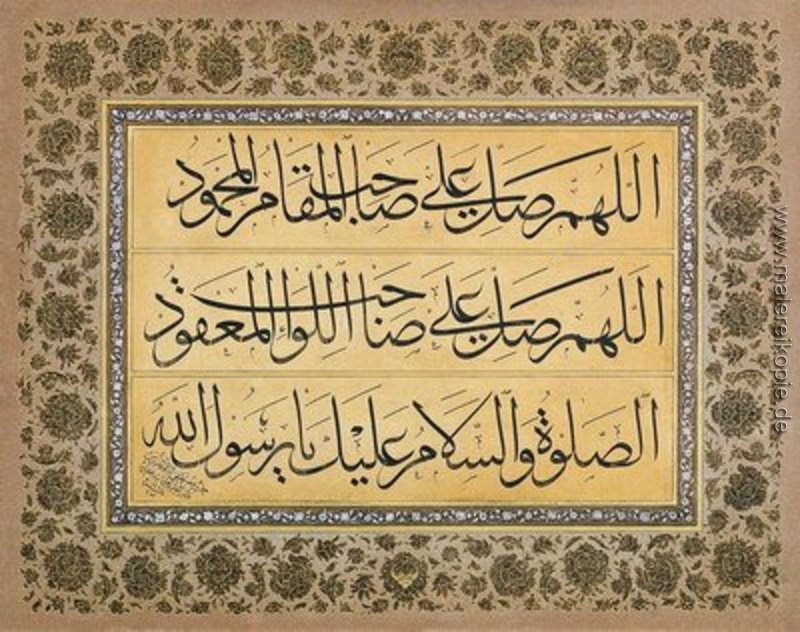 اللهم صل على صاحب المقام المحمود
اللهم صل على صاحب اللواء المعقود
الصلوة والسلام عليك يا رسول الله
www.malereikopie.de